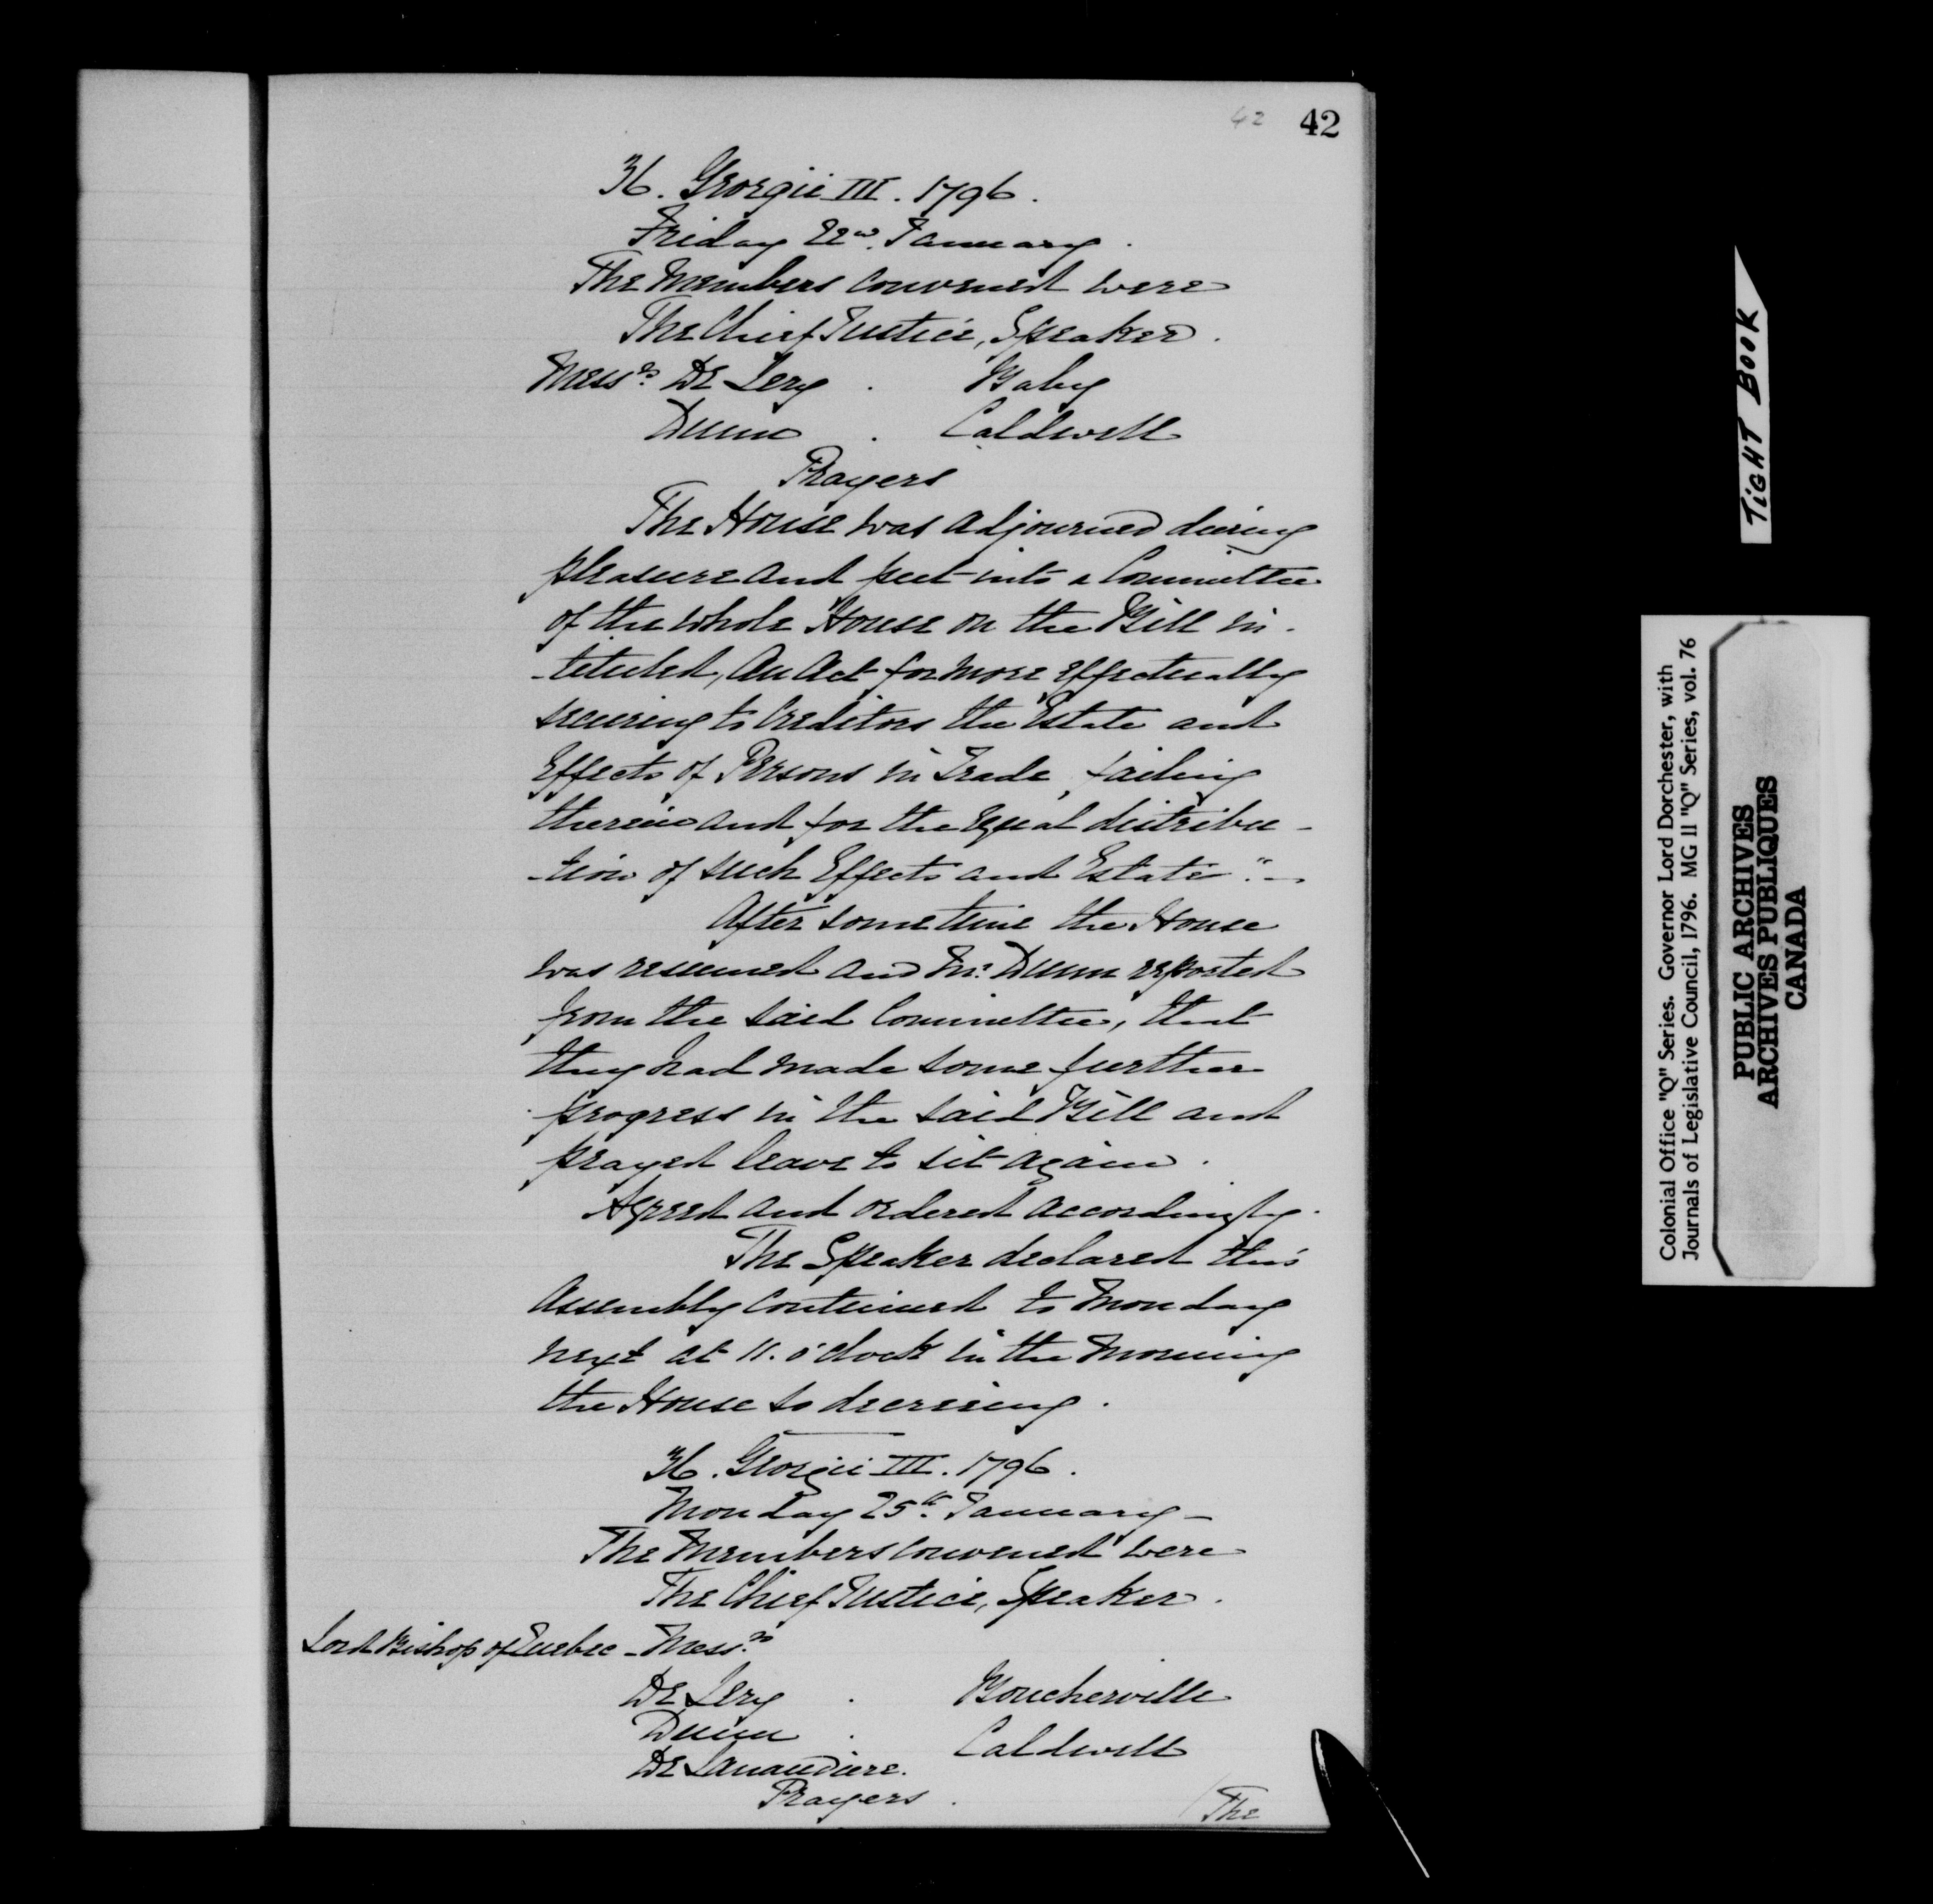 42 42
36. Georgii III. 1796.
Friday 22nd. January.
The Members convened were
The Chief Justice, Speaker.
Messrs. De Lery . Baby
Dunn . Caldwell
Prayers
The House was adjourned during
pleasure and put into a Committee
of the whole House on the Bill in-
-tituled, An Act for more effectually
securing to Creditors the Estate and
Effects of Persons in Trade, failing
therein and for the Equal distribu-
-tion of such Effects and Estate".-
After sometime the House
was resumed and Mr. Dunn reported
from the said Committee, that
they had made some further
progress in the said Bill and
prayed leave to sit again.
Agreed and ordered accordingly.
The Speaker declared this
Assembly continued to Monday
next at 11. o'clock in the Morning
the House so decreeing.
36. Georgii III. 1796.
Monday 25th. January-
The Members convened were
The Chief Justice, Speaker.
Lord Bishop of Quebec - Messrs.
De Lery . Boucherville
Dunn . Caldwell
De Lanaudiere.
Prayers.
/The
TiGHT BOOK
Colonial Office "Q" Series. Governor Lord Dorchester, with
Journals of Legislative Council, 1796. MG 11 "Q" Series, vol. 76
PUBLIC ARCHIVES
ARCHIVES PUBLIQUES
CANADA